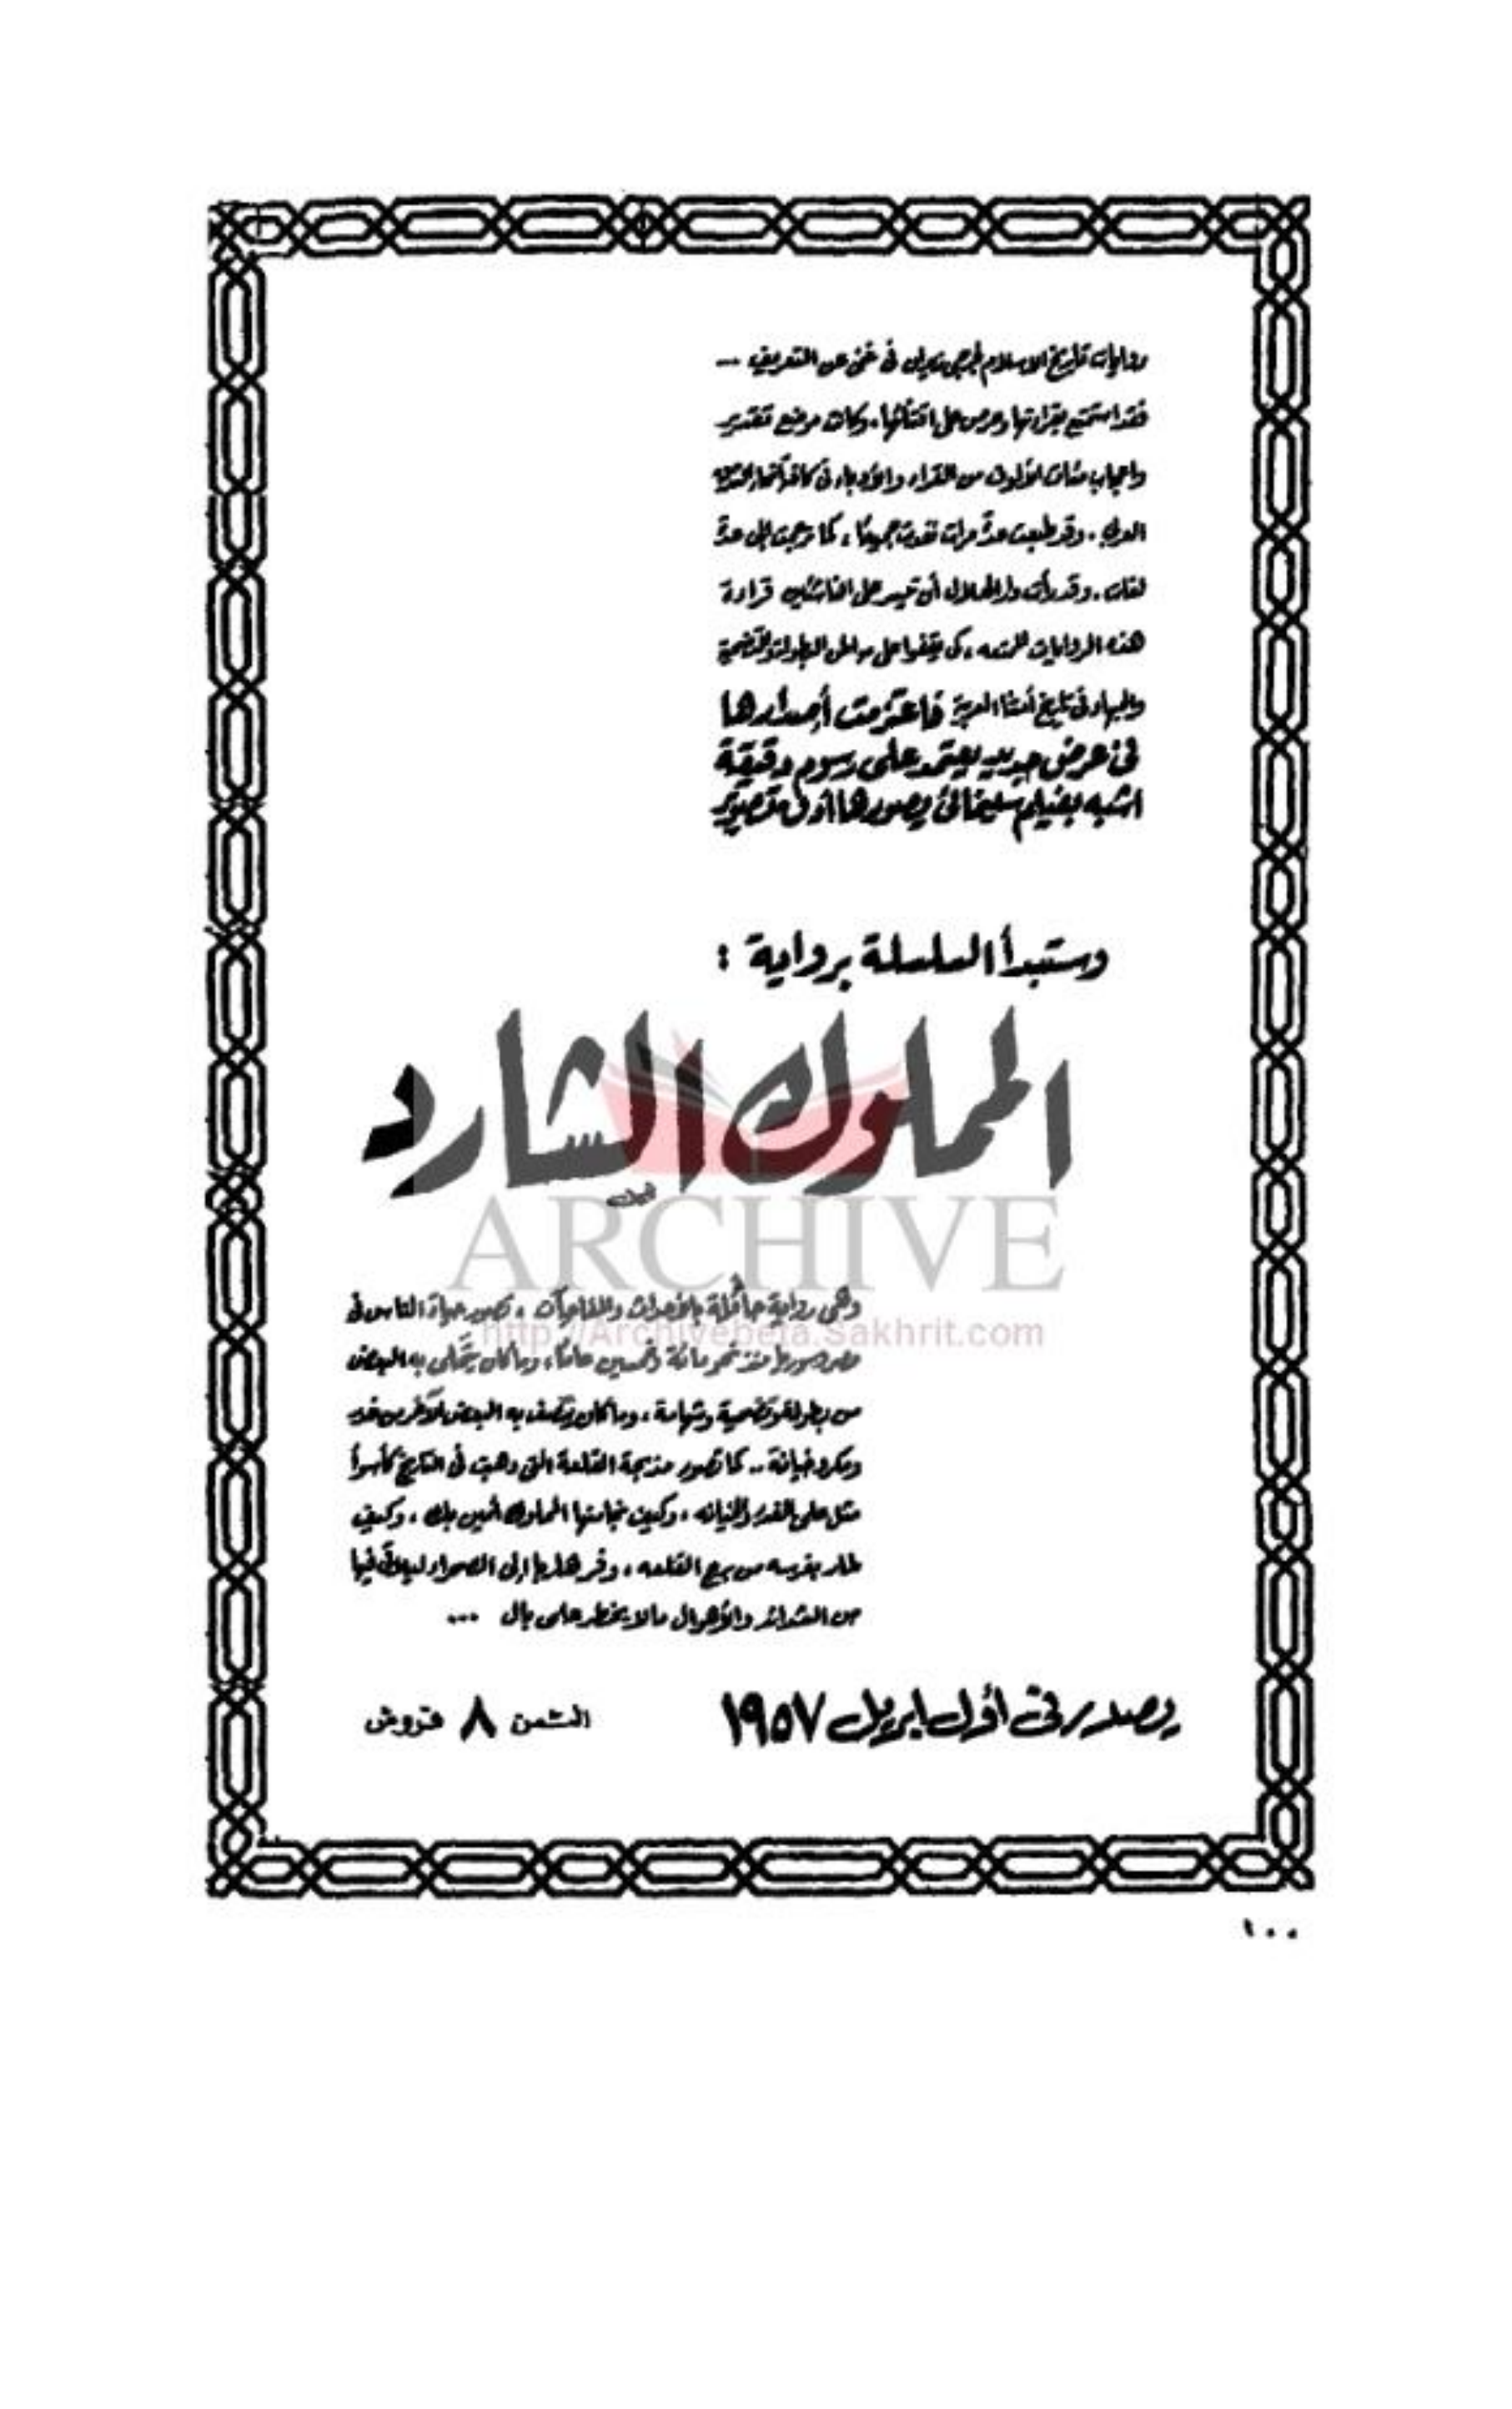 روايات تاريخ الاسلام لجرجى زيدان فى غنى عن التعريف ...
فقد استمتع بقراءتها وحرص على اقتنائها، وكانت موضع تقدير
واعجاب مئات الألوف من القراء والأدباء فى كافة أنحاء الشرق
العربى . وقد طبعت عدة مرات نفدت جميعًا ، كما ترجمت إلى عدة
لغات . وقد رأت دار الهلال أن تيسر على الناشئين قراءة
هذه الروايات الممتعه ، كى يقفوا على مواطن البطولة والتضحية
والجهاد فى تاريخ أمتنا العربية فاعتزمت أصدارها
فى عرض جديد يعتمد على رسوم دقيقة
اشبه بفيلم سينمائى يصورها أدق تصوير
وستبدأ السلسلة برواية :
المملوك الشارد
ARCHIVE
وهى رواية حافلة بالأحداث والمفاجآت ، تصور حياة الناس فى
http://Archivebeta.Sakhrit.com
مصر وسوريا منذ نحو مائة وخمسين عامًا ، وما كان يتحلى به البعض
من بطولة وتضحية وشهامة ، وما كان يتصف به البعض الآخر من غدر
ومكر وخيانة .. كما تصور مذبحة القلعة التى ذهبت فى التاريخ كأسوأ
مثل على الغدر والخيانه ، وكيف نجا منها المملوك أمين بك ، وكيف
طار بفرسه من برج القلعه ، وفر هاربا إلى الصحراء ليلاقى فيها
من الشدائد والأهوال ما لا يخطر على بال ...
يصدر فى أول ابريل ١٩٥٧
الثمن ٨ قروش
١٠٠